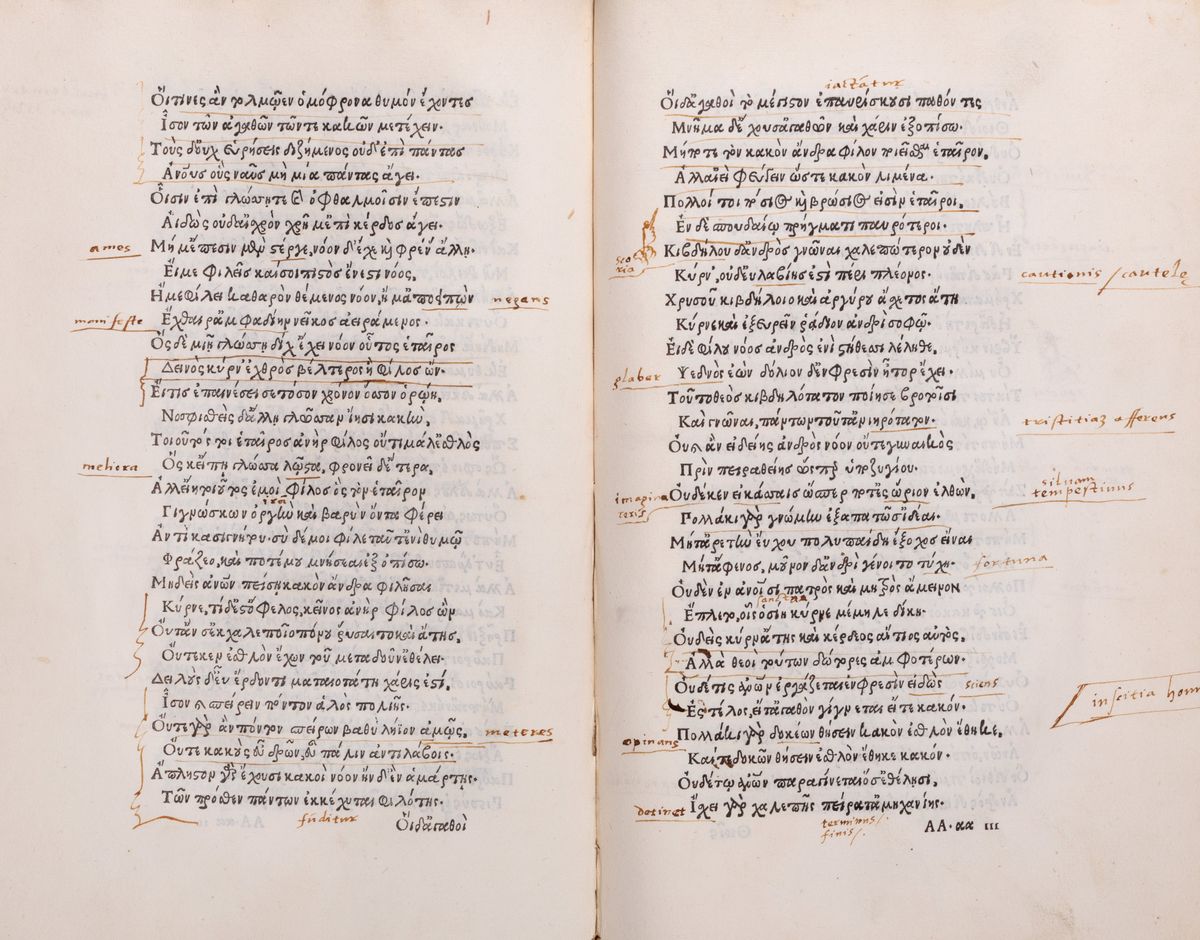 Οἵτινες ἂν τολμῷεν ὁμόφρονα θυμὸν ἔχοντες
Ἶσον τῶν ἀγαθῶν τῶν τε κακῶν μετέχειν.
Τοὺς δ' οὐχ εὑρήσεις διζήμενος οὐδ' ἐπὶ πάντας
Ἀνθρώπους οὓς ναῦς μὴ μία πάντας ἄγει.
Οἷσιν ἐπὶ γλώσσῃ τε καὶ ὀφθαλμοῖσιν ἔπεστιν
Αἰδὼς οὐδ' αἰσχρὸν χρῆμ' ἐπὶ κέρδος ἄγει.
ames
Μή μ' ἔπεσιν μὲν στέργε, νόον δ' ἔχε καὶ φρέν' ἄλλῃ.
Εἴ με φιλεῖς καί σοι πιστὸς ἔνεστι νόος,
Ἤ με φίλει καθαρὸν θέμενος νόον, ἤ μ' ἀποειπὼν
negans
manifeste
Ἔχθαιρ' ἀμφαδίην νεῖκος ἀειράμενος.
Ὃς δὲ μιῇ γλώσσῃ δίχ' ἔχει νόον οὗτος ἑταῖρος
Δεινὸς κύρν' ἐχθρὸς βέλτερος ἢ φίλος ὤν.
Εἴ τις ἐπαινέσει σε τόσον χρόνον ὅσσον ὁρῴη,
Νοσφισθεὶς δ' ἄλλῃ γλῶσσαν ἵησι κακήν,
Τοιοῦτός τοι ἑταῖρος ἀνὴρ φίλος οὔτι μάλ' ἐσθλὸς
meliora
Ὅς κ' εἴπῃ γλώσσᾳ λῷστα, φρονεῖ δ' ἕτερα,
Ἀλλ' εἴη τοιοῦτος ἐμοὶ φίλος ὃς τὸν ἑταῖρον
Γιγνώσκων ὀργὴν καὶ βαρὺν ὄντα φέρει
Ἀντὶ κασιγνήτου. σὺ δέ μοι φίλε ταῦτ' ἐνὶ θυμῷ
Φράζεο, καί ποτέ μου μνήσεαι ἐξοπίσω.
Μηδείς σ' ἀνθρώπων πείσῃ κακὸν ἄνδρα φιλῆσαι
Κύρνε, τί δ' ἔστ' ὄφελος, κεῖνος ἀνὴρ φίλος ὢν
Οὔτ' ἄν σ' ἐκ χαλεποῖο πόνου ῥύσαιτο καὶ ἄτης,
Οὔτε κεν ἐσθλὸν ἔχων τοῦ μεταδοῦν ἐθέλει.
Δειλοὺς δ' εὖ ἔρδοντι ματαιοτάτη χάρις ἐστί,
Ἶσον καὶ σπείρειν πόντον ἁλὸς πολιῆς.
Οὔτε γὰρ ἂν πόντον σπείρων βαθὺ λήϊον ἀμῷς,
meteres
Οὔτε κακοὺς εὖ δρῶν, εὖ πάλιν ἀντιλάβοις.
Ἄπληστον γὰρ ἔχουσι κακοὶ νόον ἢν δ' ἓν ἁμάρτῃς.
Τῶν πρόσθεν πάντων ἐκκέχυται φιλότης.
funditur
Οἱ δ' ἀγαθοὶ
iactatur
Οἱ δ' ἀγαθοὶ τὸ μέγιστον ἐπαυρίσκουσι παθόντες
Μνῆμα δ' ἔχουσ' ἀγαθῶν καὶ χάριν ἐξοπίσω.
Μήποτε τὸν κακὸν ἄνδρα φίλον ποιεῖσθαι ἑταῖρον,
Ἀλλ' αἰεὶ φεύγειν ὥστε κακὸν λιμένα.
Πολλοί τοι πόσιος καὶ βρώσιός εἰσιν ἑταῖροι,
Ἐν δὲ σπουδαίῳ πρήγματι παυρότεροι.
scoria
Κιβδήλου δ' ἀνδρὸς γνῶναι χαλεπώτερον οὐδὲν
Κύρν', οὐδ' εὐλαβίης ἐστὶ περὶ πλέονος.
cautionis / cautelę
Χρυσοῦ κιβδήλοιο καὶ ἀργύρου ἄσχετος ἄτη
Κύρνε καὶ ἐξευρεῖν ῥᾴδιον ἀνδρὶ σοφῷ.
Εἰ δὲ φίλου νόος ἀνδρὸς ἐνὶ στήθεσσι λέληθε,
glaber
Ψεδνὸς ἐὼν δόλιον δ' ἐν φρεσὶν ἦτορ ἔχει.
Τοῦτο θεὸς κιβδηλότατον ποίησε βροτοῖσι
Καὶ γνῶναι, πάντων τοῦτ' ἀνιηρότατον.
tristitiam afferens
Οὐ γὰρ ἂν εἰδείης ἀνδρὸς νόον οὔτε γυναικὸς
Πρὶν πειραθείης ὥσπερ ὑποζυγίου.
imaginaueris
Οὐδέ κεν εἰκάσσαις ὥσπερ ποτ' ἐς ὥριον ἐλθὼν,
siluam
tempestiuus
Πολλάκι γὰρ γνώμην ἐξαπατῶσ' ἰδέαι.
Μήτ' ἀρετὴν εὔχου πολυπαΐδη ἔξοχος εἶναι
Μήτ' ἄφενος, μοῦνον δ' ἀνδρὶ γένοιτο τύχη.
fortuna
Οὐδὲν ἐν ἀνθρώποισι πατρὸς καὶ μητρὸς ἄμεινον
Ἔπλετο, οἷς ὁσίη κύρνε μέμηλε δίκη.
Οὐδεὶς κύρν' ἄτης καὶ κέρδεος αἴτιος αὐτὸς,
Ἀλλὰ θεοὶ τούτων δώτορες ἀμφοτέρων.
Οὐδέ τις ἀνθρώπων ἐργάζεται ἐν φρεσὶν εἰδὼς
sciens
Ἐς τέλος, εἴτ' ἀγαθὸν γίγνεται εἴτε κακόν.
inscitia hom
Πολλάκι γὰρ δοκέων θήσειν κακὸν ἐσθλὸν ἔθηκε,
opinans
Καί τε δοκῶν θήσειν ἐσθλὸν ἔθηκε κακόν.
Οὐδέ τῳ ἀνθρώπων παραγίνεται ὅσσ' ἐθέλῃσι,
detinet
Ἴσχει γὰρ χαλεπῆς πείρατ' ἀμηχανίης.
terminus /.
finis /.
AA.αα III